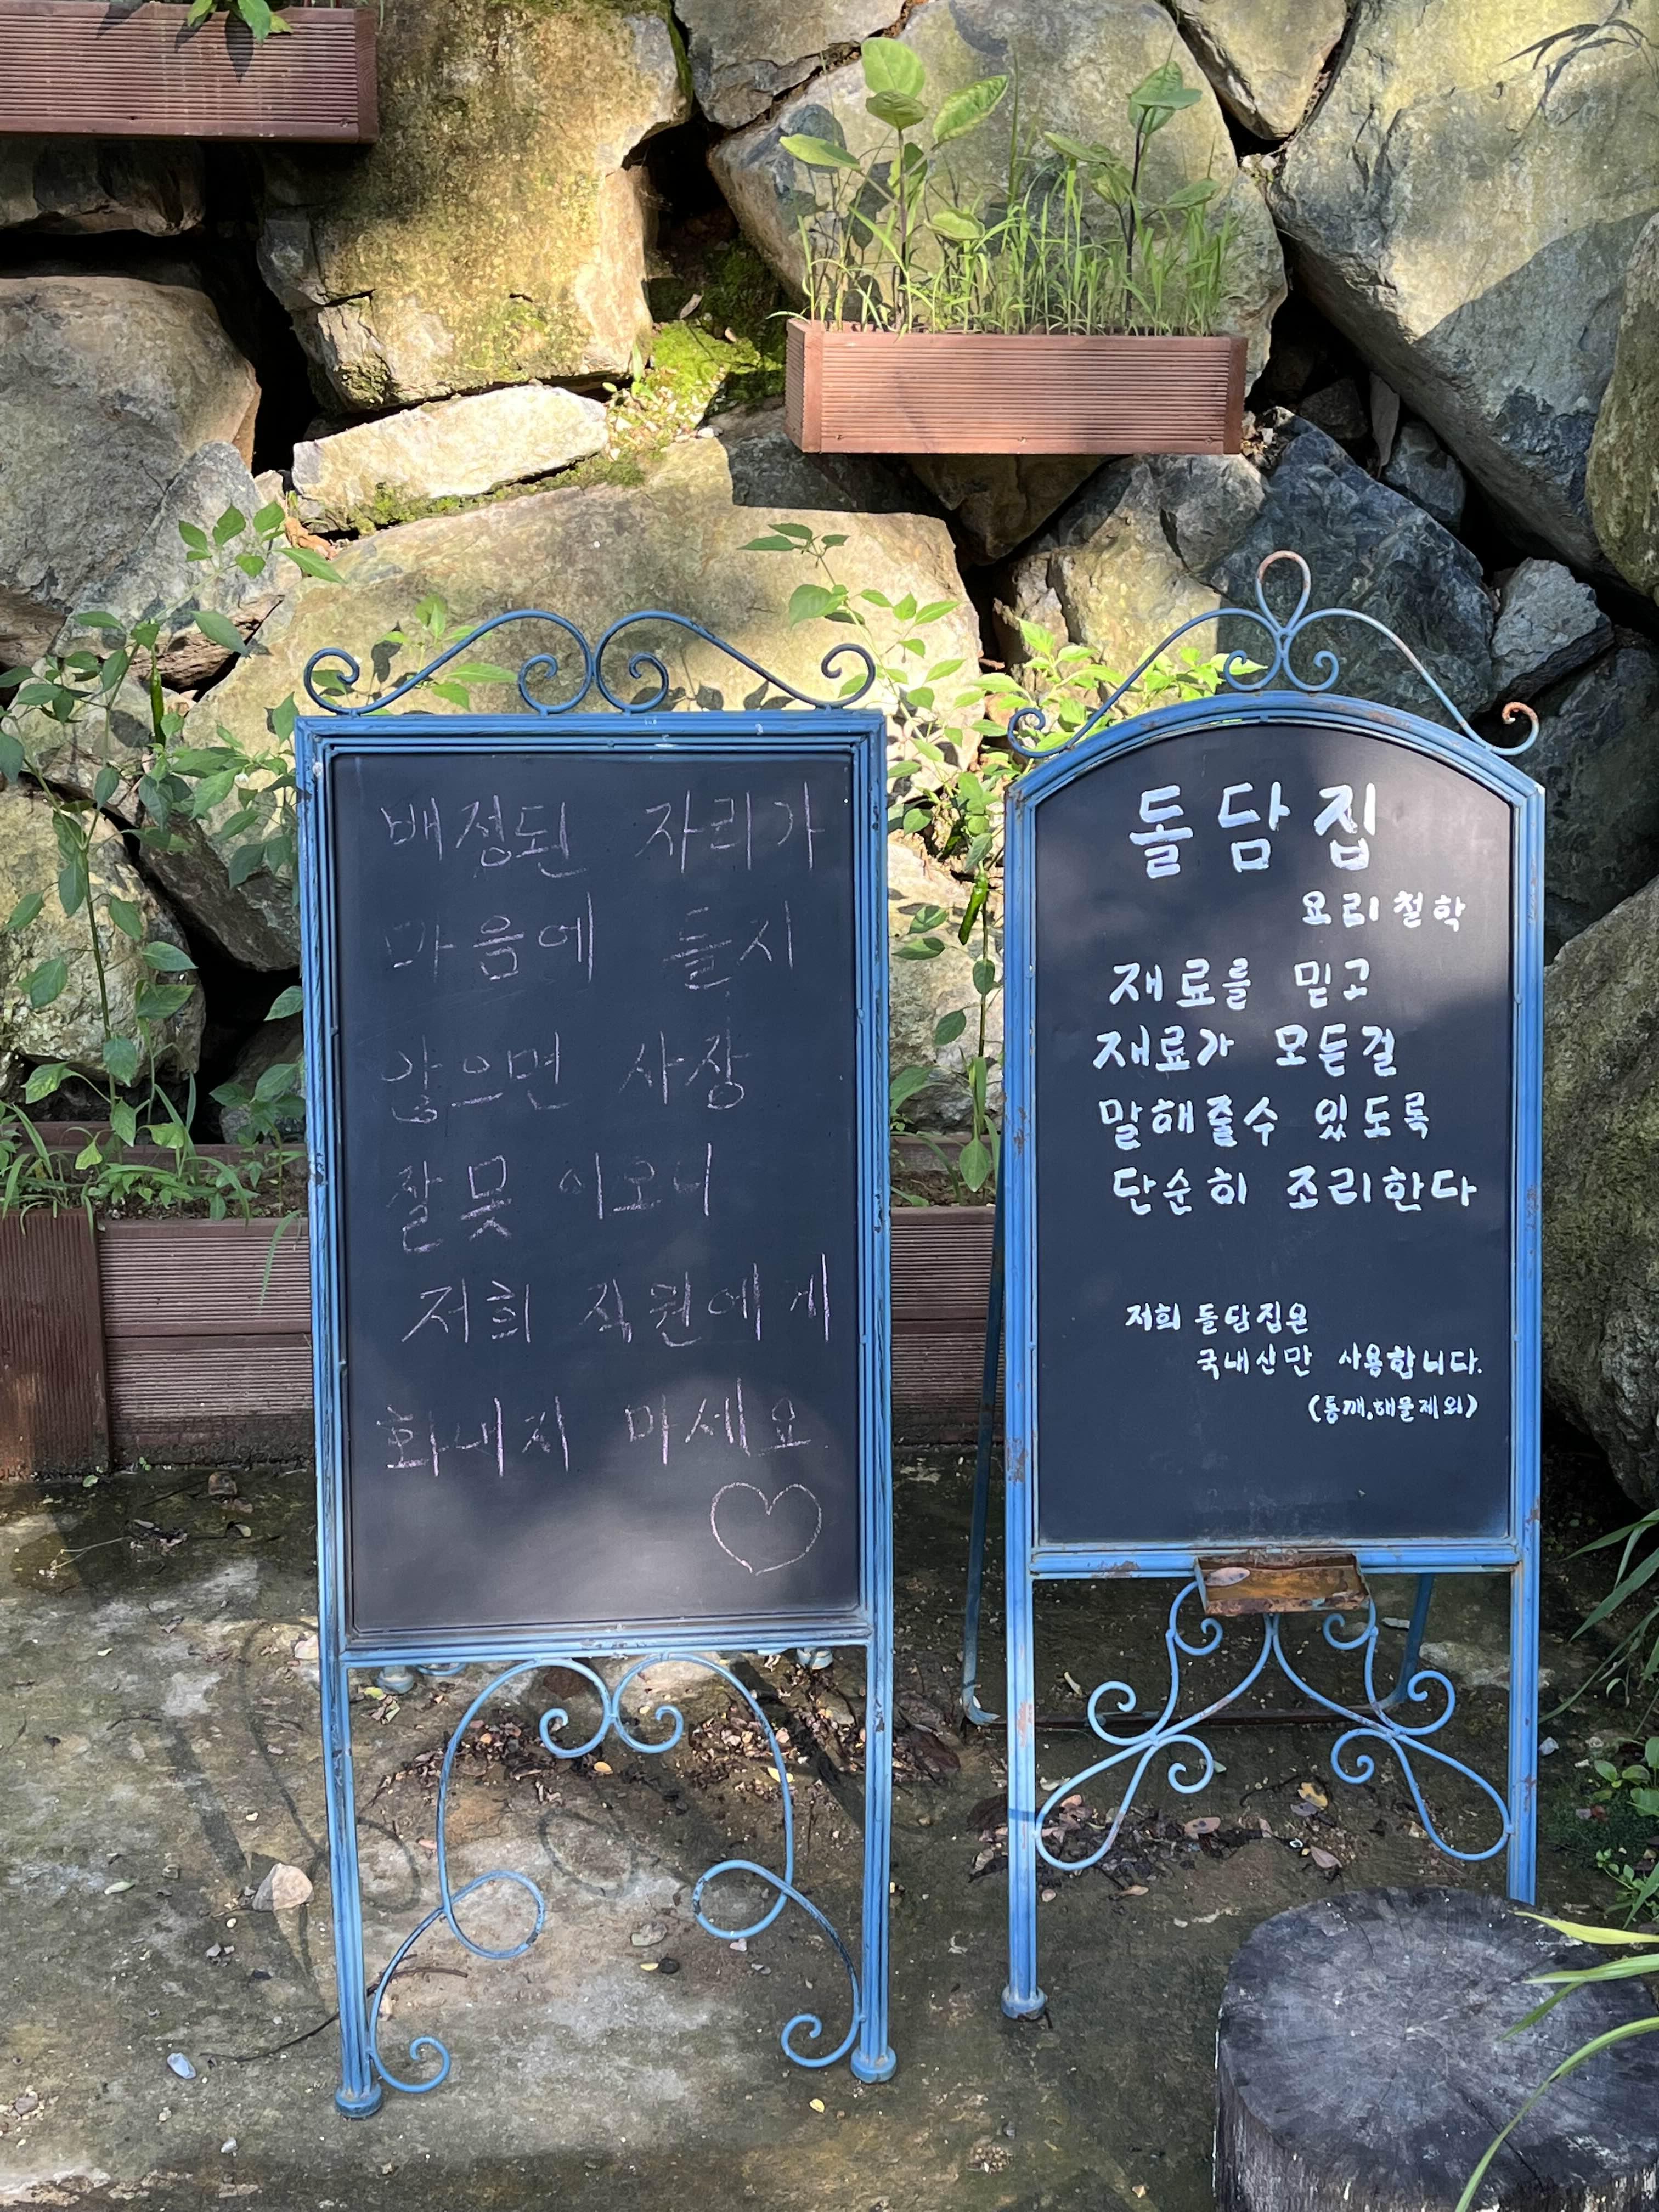 배정된 자리가
마음에 들지
않으면 사장
잘못 이오니
저희 직원에게
화내지 마세요
돌담집
요리철학
재료를 믿고
재료가 모든걸
말해줄수 있도록
단순히 조리한다
저희 돌담집은
국내산만 사용합니다.
(통깨,해물제외)